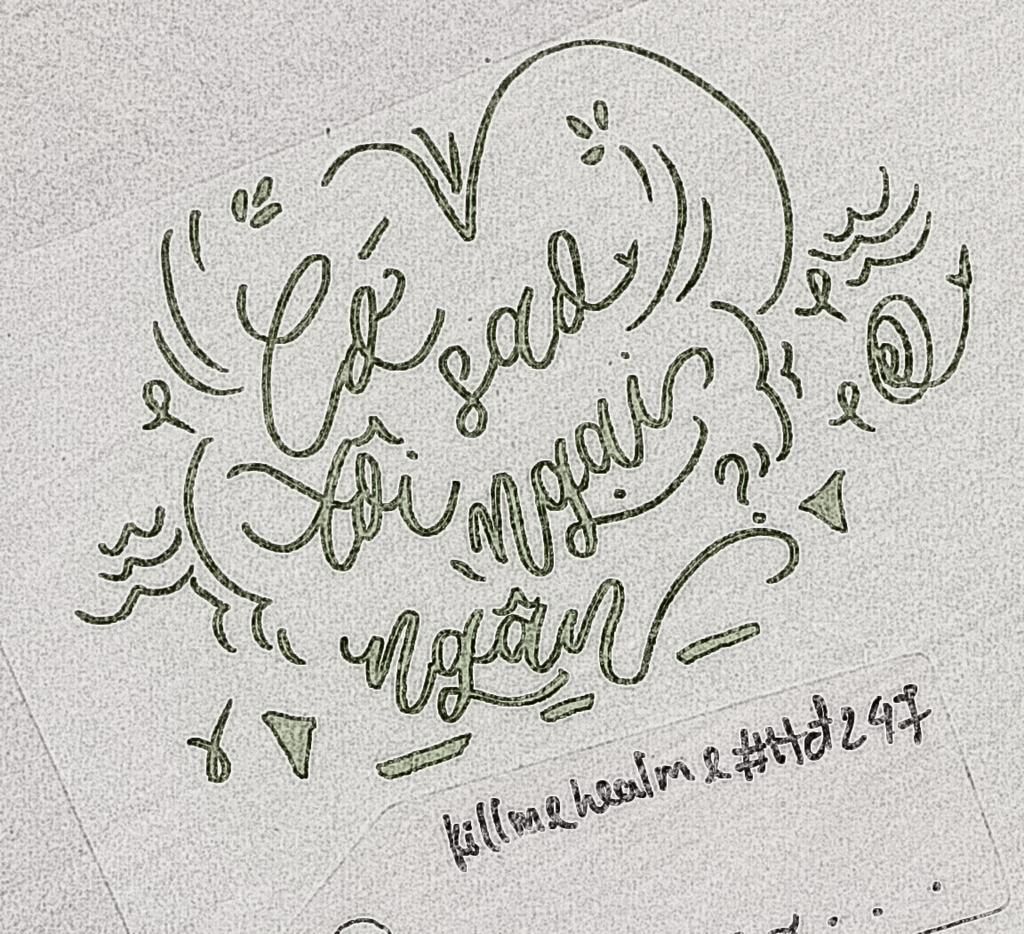 Cớ sao
tôi ngại ?
ngần
killmehealme#Hđ247